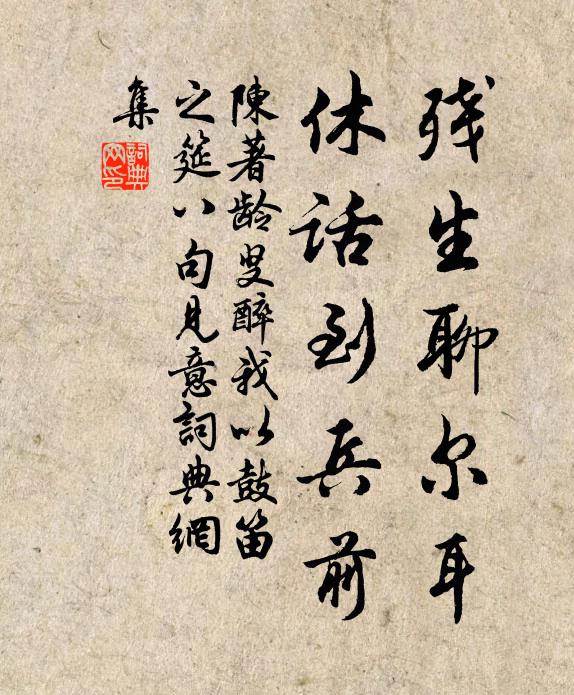 残生聊尔耳
休话到兵前
陳著龄叟醉我以鼓笛
之筵八句見意詞典網
集
詞典
网印